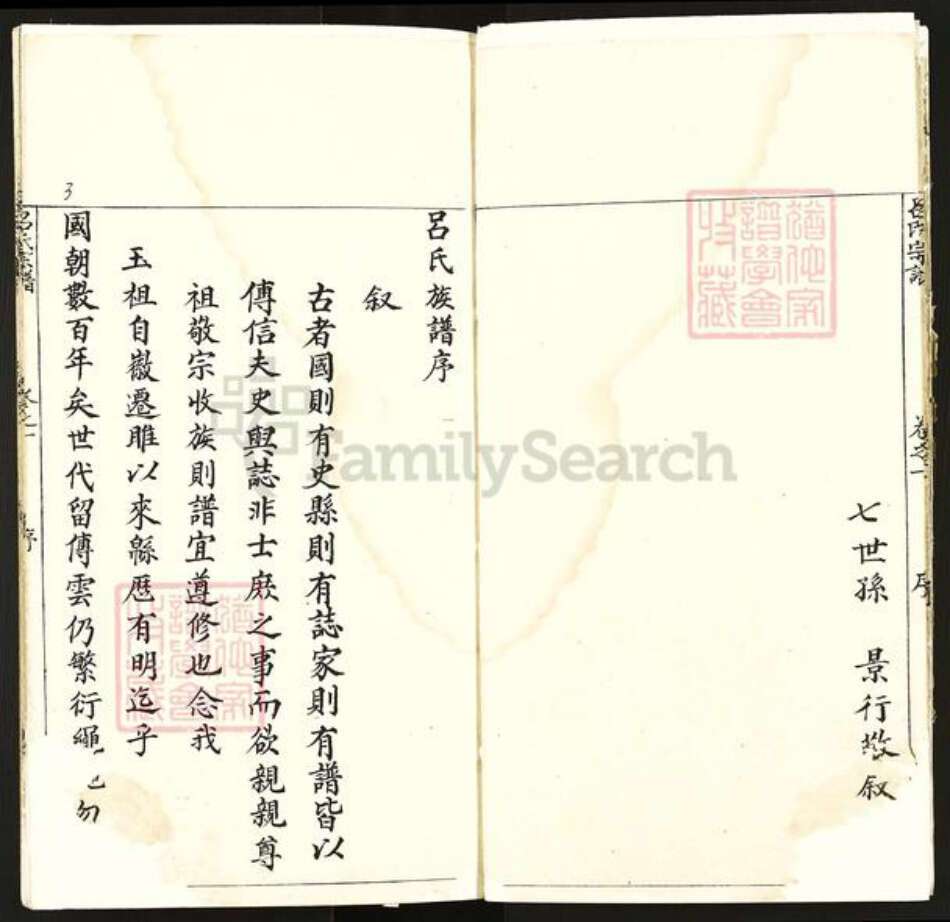 呂氏宗譜
卷之一
序
七世孫 景行敬叙
呂氏族譜序
叙
古者國則有史縣則有誌家則有譜皆以
傳信夫史與誌非士庶之事而欲親親尊
祖敬宗收族則譜宜遵修也念我
玉祖自徽遷睢以來緜歷有明迄乎
國朝數百年矣世代留傳雲仍繁衍繩
勿
3
呂氏宗譜
卷之一
序
猶他家譜學會收藏
猶他家譜學會收藏
FamilySearch